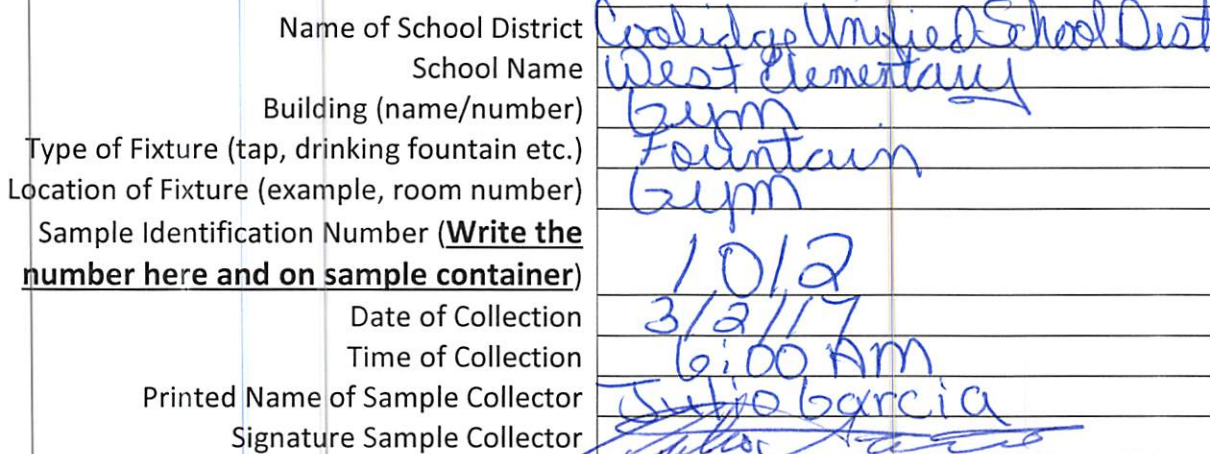 Name of School District Coolidge Unified School Dist
School Name West Elementary
Building (name/number) Gym
Type of Fixture (tap, drinking fountain etc.) Fountain
Location of Fixture (example, room number) Gym
Sample Identification Number (Write the
number here and on sample container) 1012
Date of Collection 3/2/17
Time of Collection 6:00 AM
Printed Name of Sample Collector Julio Garcia
Signature Sample Collector